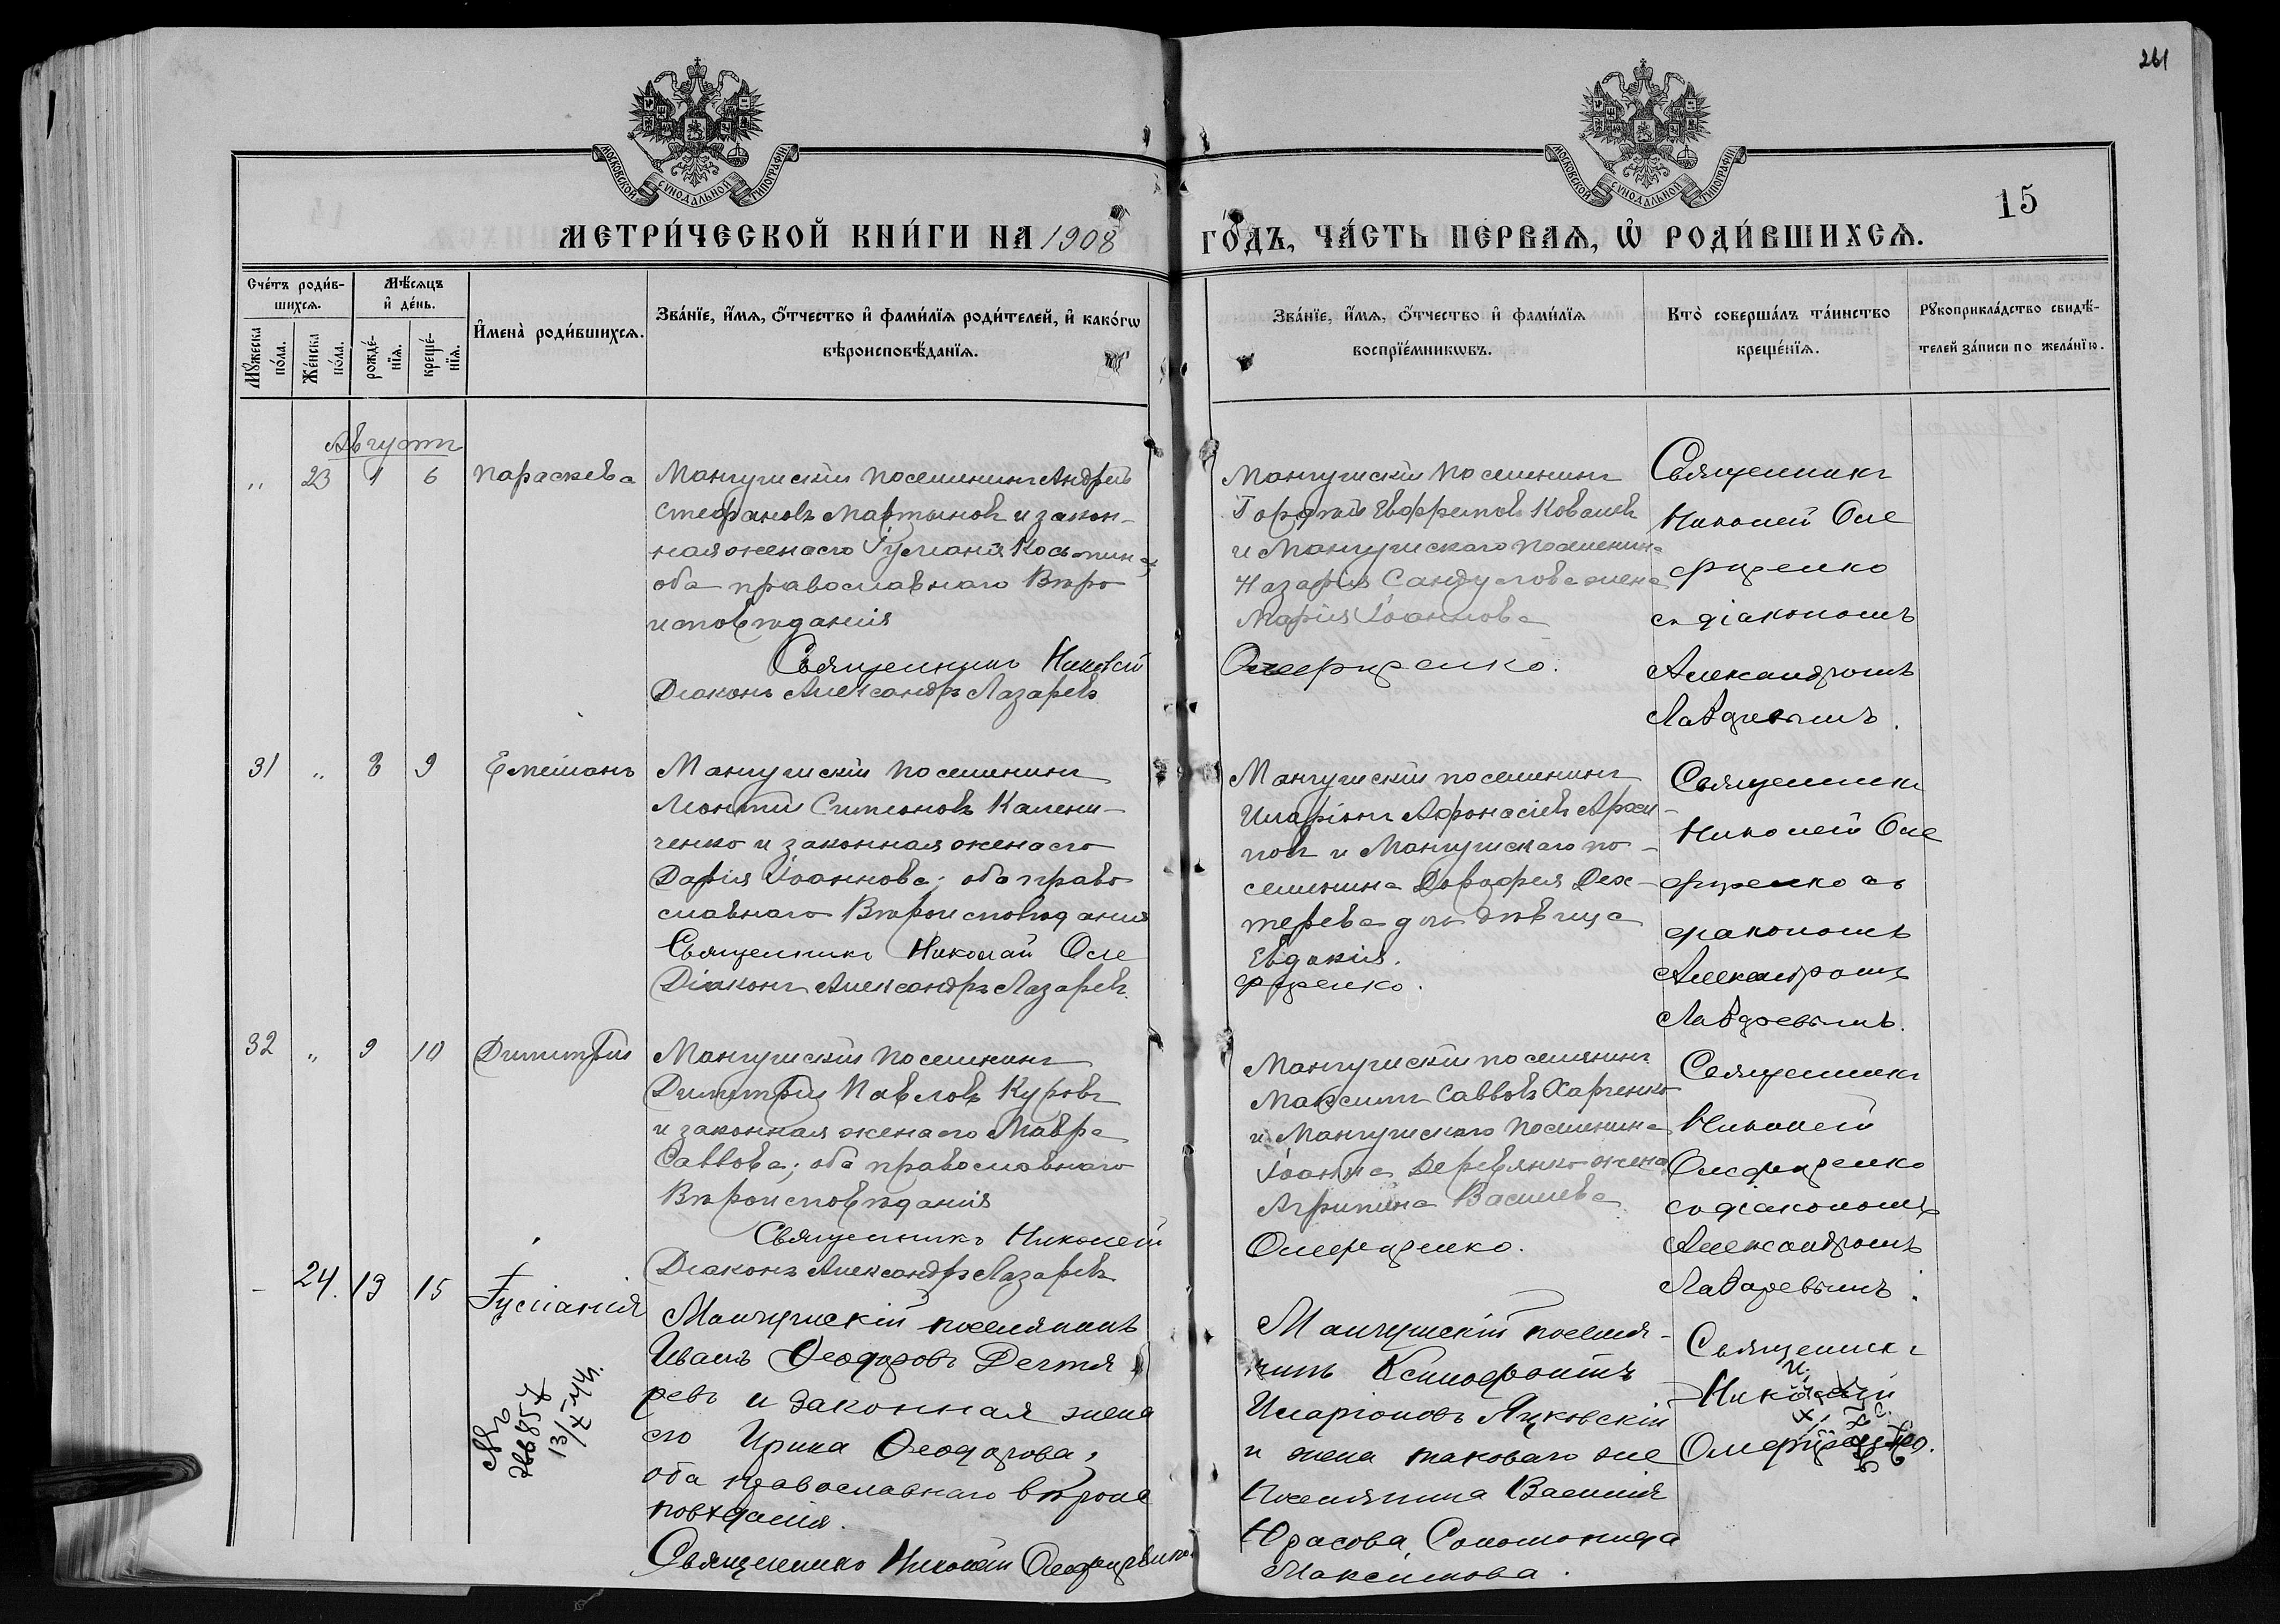 261
МОСКОВСКОЙ СѴНОДАЛЬНОЙ ТИПОГРАФІИ
МОСКОВСКОЙ СѴНОДАЛЬНОЙ ТИПОГРАФІИ
15
МЕТРИ́ЧЕСКОЙ КНИ́ГИ НА 1908 ГО́ДЪ, ЧА́СТЬ ПЕ́РВАѦ, Ѡ҆ РОДИ́ВШИХСѦ.
Сче́тъ роди́в-
шихсѧ.
Мѣ́сѧцъ
и҆ де́нь.
И҆мена̀ роди́вшихсѧ.
Зва́нїе, и҆́мѧ, ѻ҆́тчество и҆ фами́лїѧ роди́телей, и҆ како́гѡ
вѣроисповѣ́данїѧ.
Зва́нїе, и҆́мѧ, ѻ҆́тчество и҆ фами́лїѧ
воспрїе́мникѡвъ.
Кто̀ соверша́лъ та́инство
креще́нїѧ.
Рꙋкоприкла́дство свидѣ́-
телей за́писи по жела́нїю.
Мꙋ́жеска
по́ла.
Же́нска
по́ла.
рожде́-
нїѧ.
креще́-
нїѧ.
Августъ
" 23 1 6 Параскева
Мангушскій поселянинъ Андрей
Стефановъ Мартыновъ и закон-
ная жена его Гусланія Косьмина,
оба православнаго Веро
исповѣданія
Священникъ Николай
Діаконъ Александръ Лазаревъ
Мангушскій поселянинъ
Гордѣй Евфремовъ Ковалевъ
и Мангушскаго поселянина
Назарія Сандулова жена
Марія Іоаннова
Олефиренко.
Священникъ
Николай Оле
фиренко
съ діакономъ
Александромъ
Лазаревымъ.
31 " 8 9 Емеліанъ
Мангушскій поселянинъ
Леонтій Симоновъ Калени-
ченко и законная жена его
Дарія Іоаннова; оба право
славнаго Вѣроисповѣданія
Священникъ Николай Оле
Діаконъ Александръ Лазаревъ.
Мангушскій поселянинъ
Иларіонъ Афонасіевъ Архи-
повъ и Мангушскаго по-
селянина Дорофея Дех-
терева дочь дѣвица
Евдокія.
фиренко.
Священникъ
Николай Оле
фиренко съ
діакономъ
Александромъ
Лазаревымъ.
32 " 9 10 Димитрій
Мангушскій поселянинъ
Димитрій Павловъ Куровъ
и законная жена его Мавра
Саввова; оба православнаго
Вѣроисповѣданія
Священникъ Николай
Діаконъ Александръ Лазаревъ
Мангушскій поселянинъ
Максимъ Саввовъ Харченко
и Мангушскаго поселянина
Іоанна Деревянко жена
Агрипина Васильева
Олефиренко.
Священникъ
Николай
Олефиренко
съ діакономъ
Александромъ
Лазаревымъ.
- 24. 13 15 Гусланія
Мангушскій поселянинъ
Иванъ Ѳеодоровъ Дегтя
ревъ и законная жена
его Ирина Ѳеодорова;
оба православнаго вѣроис
повѣданія.
Священникъ Николай Олефиренко
Мангушскій поселя-
нинъ Ксенофонтъ
Иларіоновъ Яцковскій
и жена таковаго же
поселянина Василія
Юрасова, Соломонида
Максимова.
Священникъ
Николай
Олефиренко.